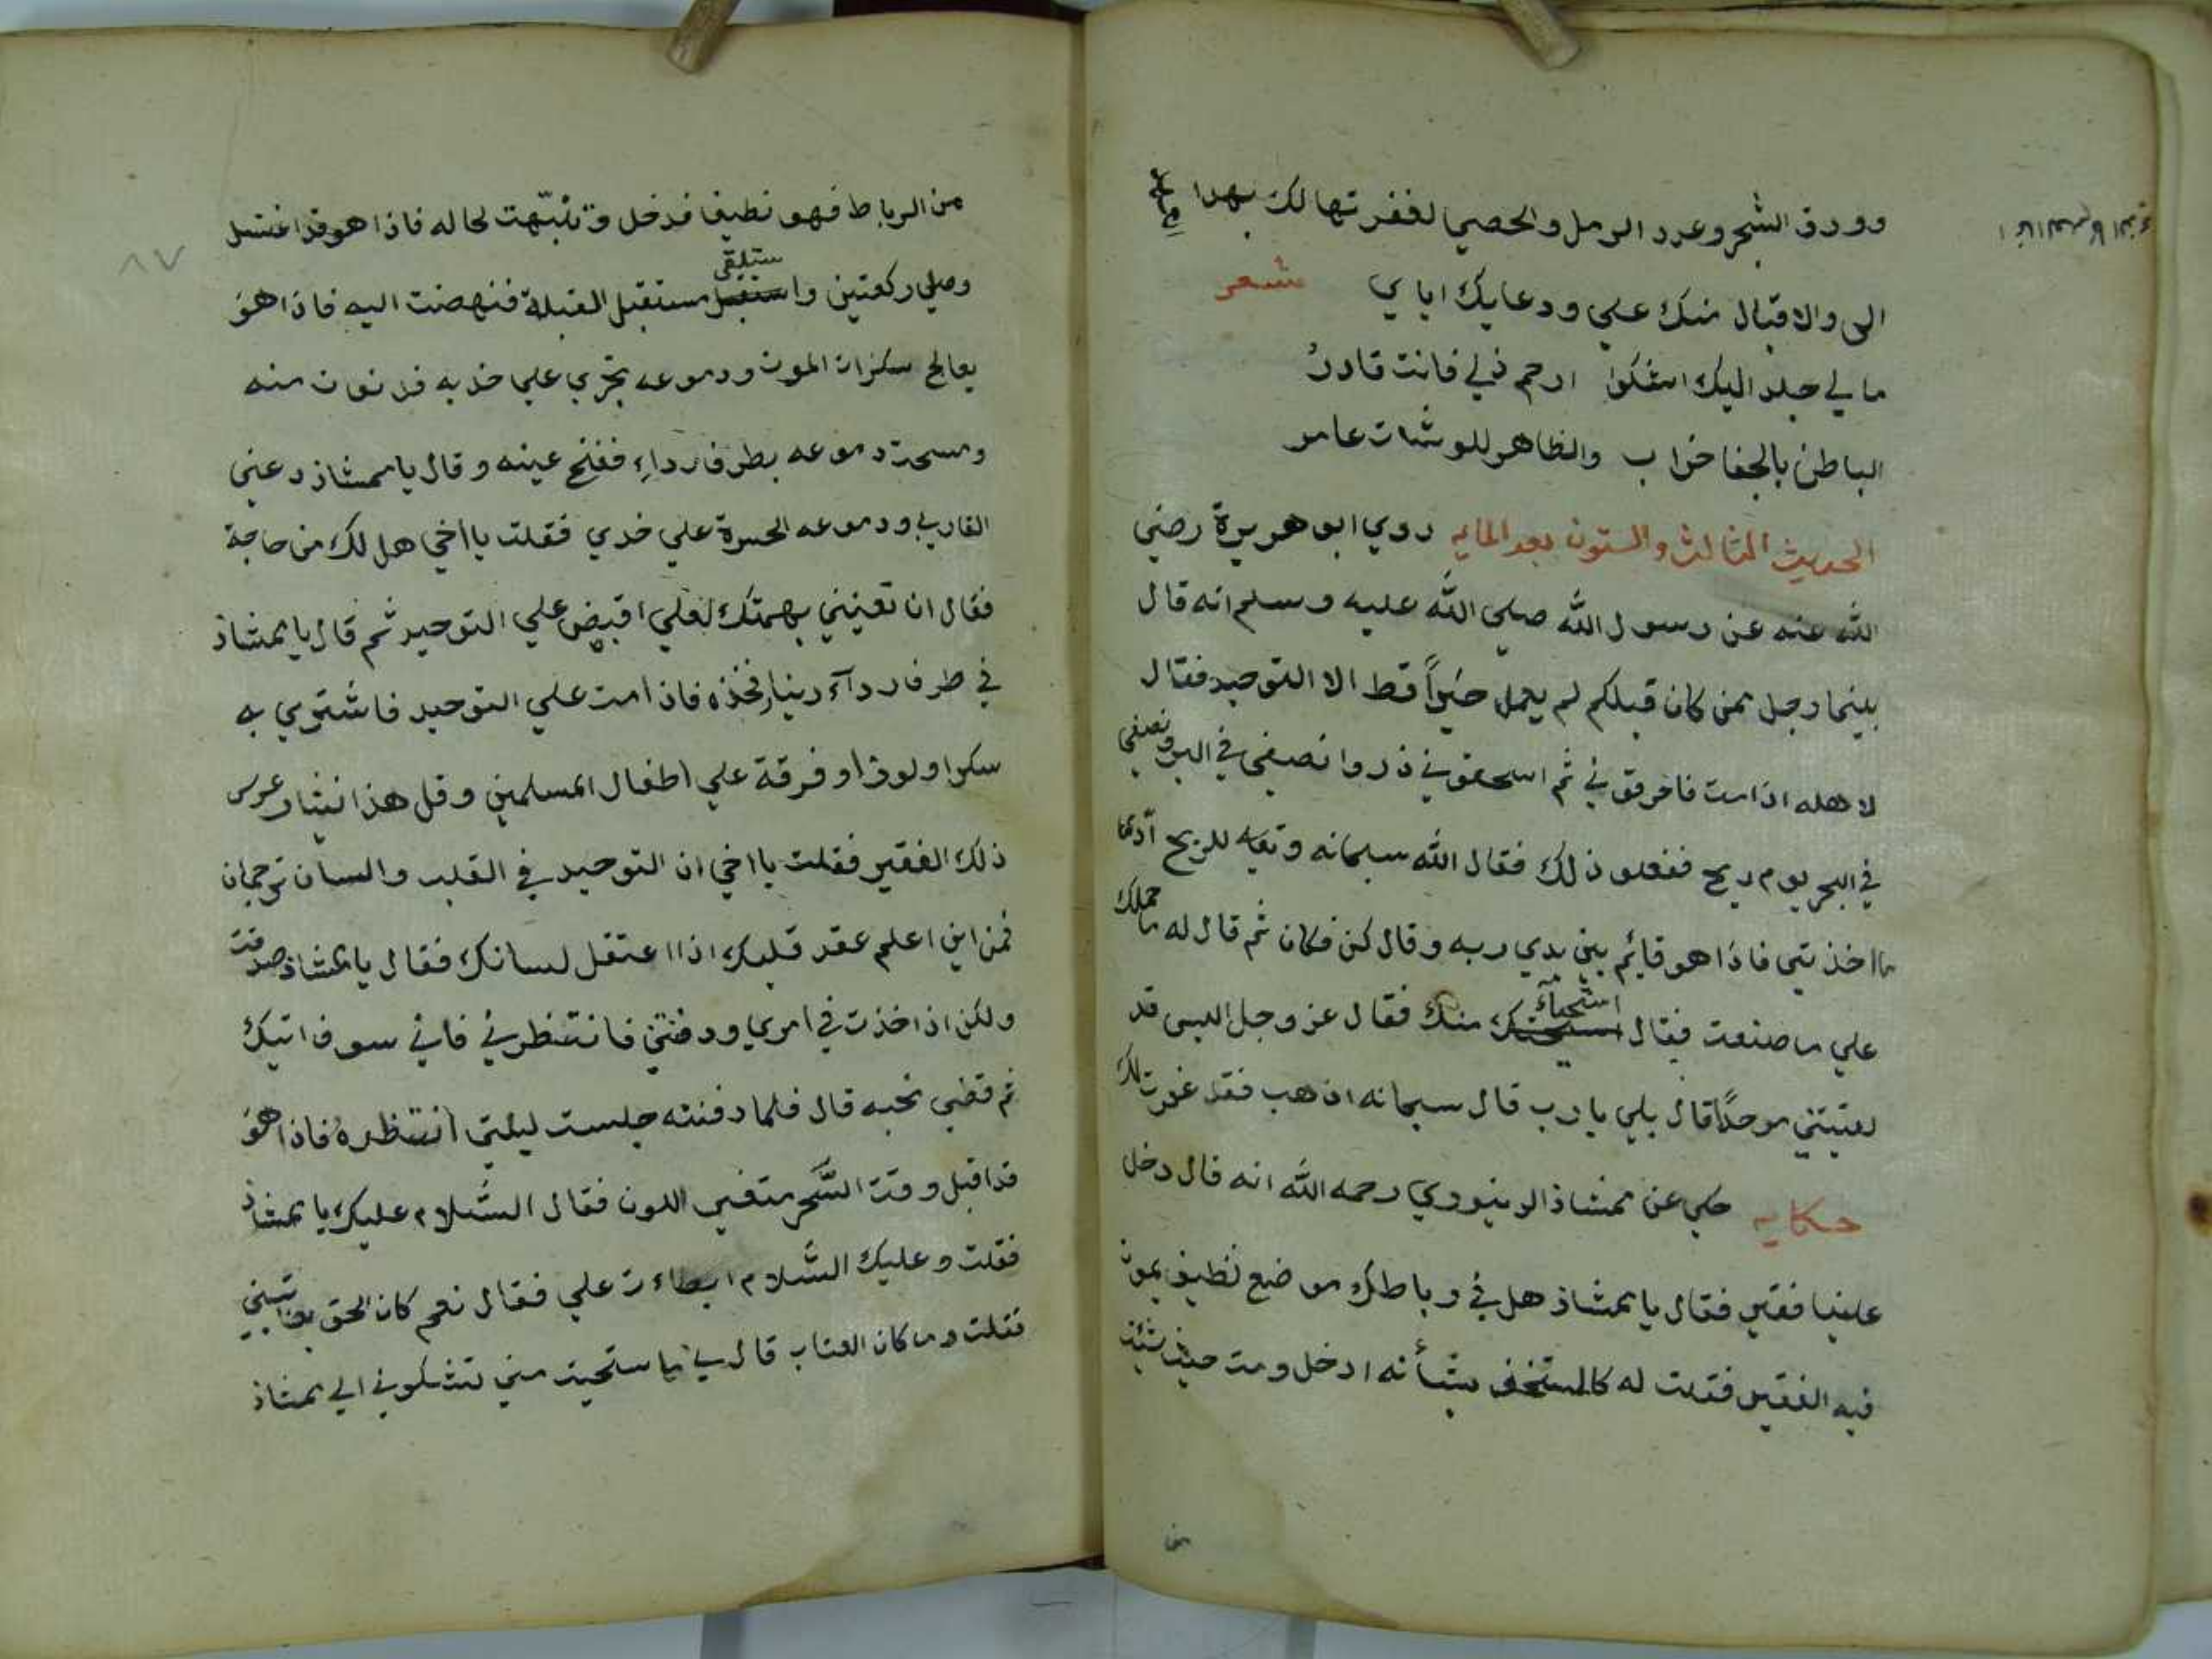 وورق الشجر وعدد الرمل والحصي لغفرتها لك بهذا
الى والاقبال منك علي ودعايك اياي شعر
مالي جلد اليك اشكوا ارحم ذلي فانت قادر
الباطن بالجفا خراب والظاهر للوشات عامر
الحديث الثالث والستون بعد المايه روي ابو هريرة رضي
الله عنه عن رسول الله صلي الله عليه وسلم انه قال
بينما رجل ممن كان قبلكم لم يعمل خيراً قط الا التوحيد فقال
لاهله اذا مت فاحرقوني ثم اسحقوني ذروا نصفي في البر ونصفي
في البحر يوم ريح ففعلو ذلك فقال الله سبحانه وتعا للريح آدي
ما اخذتي فاذا هو قايم بين يدي ربه وقال كن فكان ثم قال له ما حملك
علي ما صنعت فقال استحيآء منك فقال عز وجل اليس قد
لقيتني موحداً قال بلي يا رب قال سبحانه اذهب فقد غفرت لك
حكايه حكي عن ممشاذ الدينوري رحمه الله انه قال دخل
علينا فقير فقال يا ممشاذ هل في رباطك موضع نظيف يموت
فيه الفقير فقلت له كالمستخف بشأنه ادخل ومت حيث شئت
من
٨٧
من الرباط فهو نظيف فدخل وتنبّهت لحاله فاذا هو قد اغتسل
وصلي ركعتين واستلقى مستقبل القبلة فنهضت اليه فاذا هو
يعالج سكرات الموت ودموعه تجري علي خديه فدنوت منه
ومسحت دموعه بطرف رداء ففتح عينه وقال يا ممشاذ دعني
ودموعه الحسرة علي خدي فقلت يا اخي هل لك من حاجة
فقال ان تعينني بهمتك لعلي اقبض علي التوحيد ثم قال يا ممشاذ
في طرف ردآء دينار فخذه فاذا مت علي التوحيد فاشتري به
سكرا ولوزا وفرقة علي اطفال المسلمين وقل هذا نثار عرس
ذلك الفقير فقلت يا اخي ان التوحيد في القلب والسان ترجمان
فمن اين اعلم عقد قلبك اذا اعتقل لسانك فقال يا ممشاذ صدقت
ولكن اذا خذت في امري ودفنتني فانتظرني فاني سوف اتيك
ثم قضي نحبه قال فلما دفنته جلست ليلتي انتظره فاذا هو
قد اقبل وقت السَّحر متغير اللون فقال السَّلام عليك يا ممشاذ
فقلت وعليك السَّلام ابطاءت علي فقال نعم كان الحق يعاتبني
فقلت وما كان العتاب قال لي ما استحيت مني تشكوني الي ممشاذ